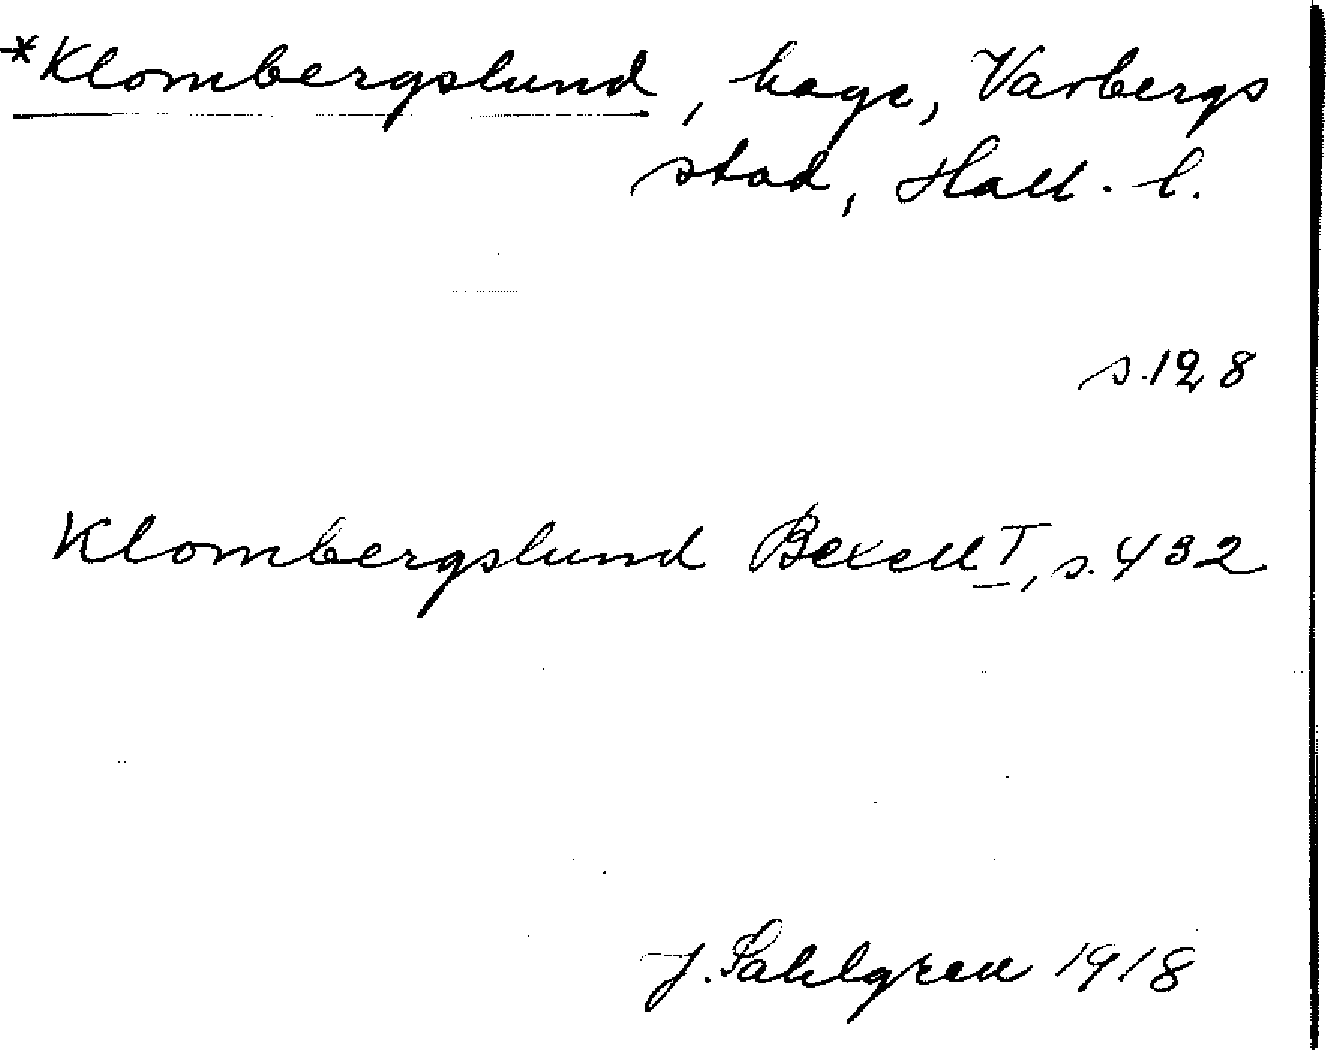 *Klombergslund, hage, Varbergs
stad, Hall. l.
s. 128
Klombergslund Bexell I, s. 432
J. Sahlgren 1918